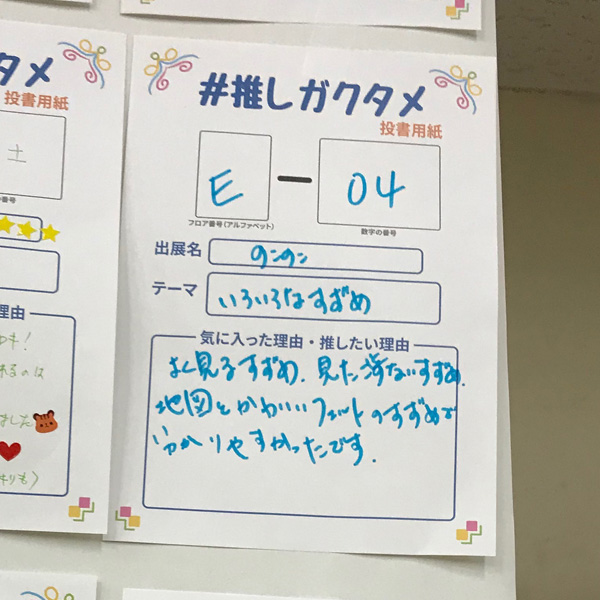 タメ
投書用紙
土
の番号
理由
キ!
れるのは
ました
きりも〉
#推しガクタメ
投書用紙
E - 04
フロア番号(アルファベット) 数字の番号
出展名 のンのン
テーマ いろいろなすずめ
気に入った理由・推したい理由
よく見るすずめ、見た事ないすずめ、
地図とかわいいフェルトのすずめで
分かりやすかったです。